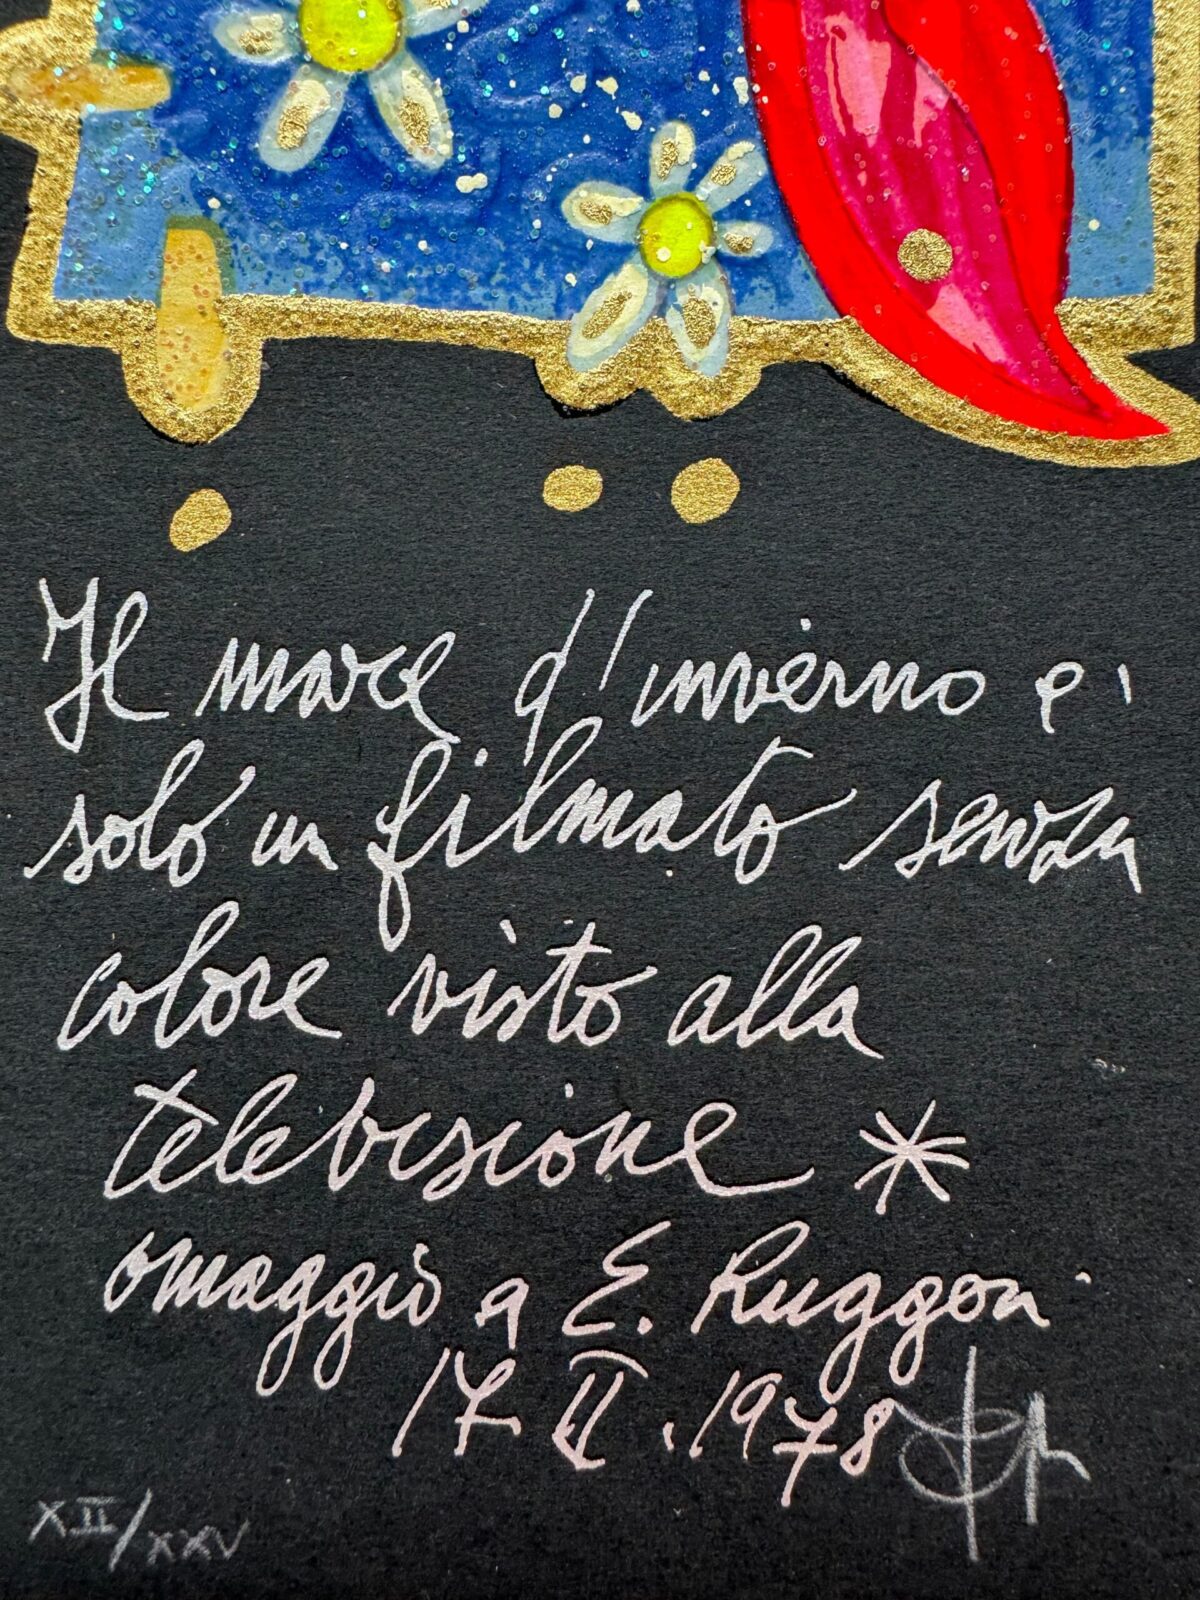 Il mare d'inverno e'
solo un filmato senza
colore visto alla
televisione *
omaggio a E. Ruggeri
17 II. 1978
XII/XXV